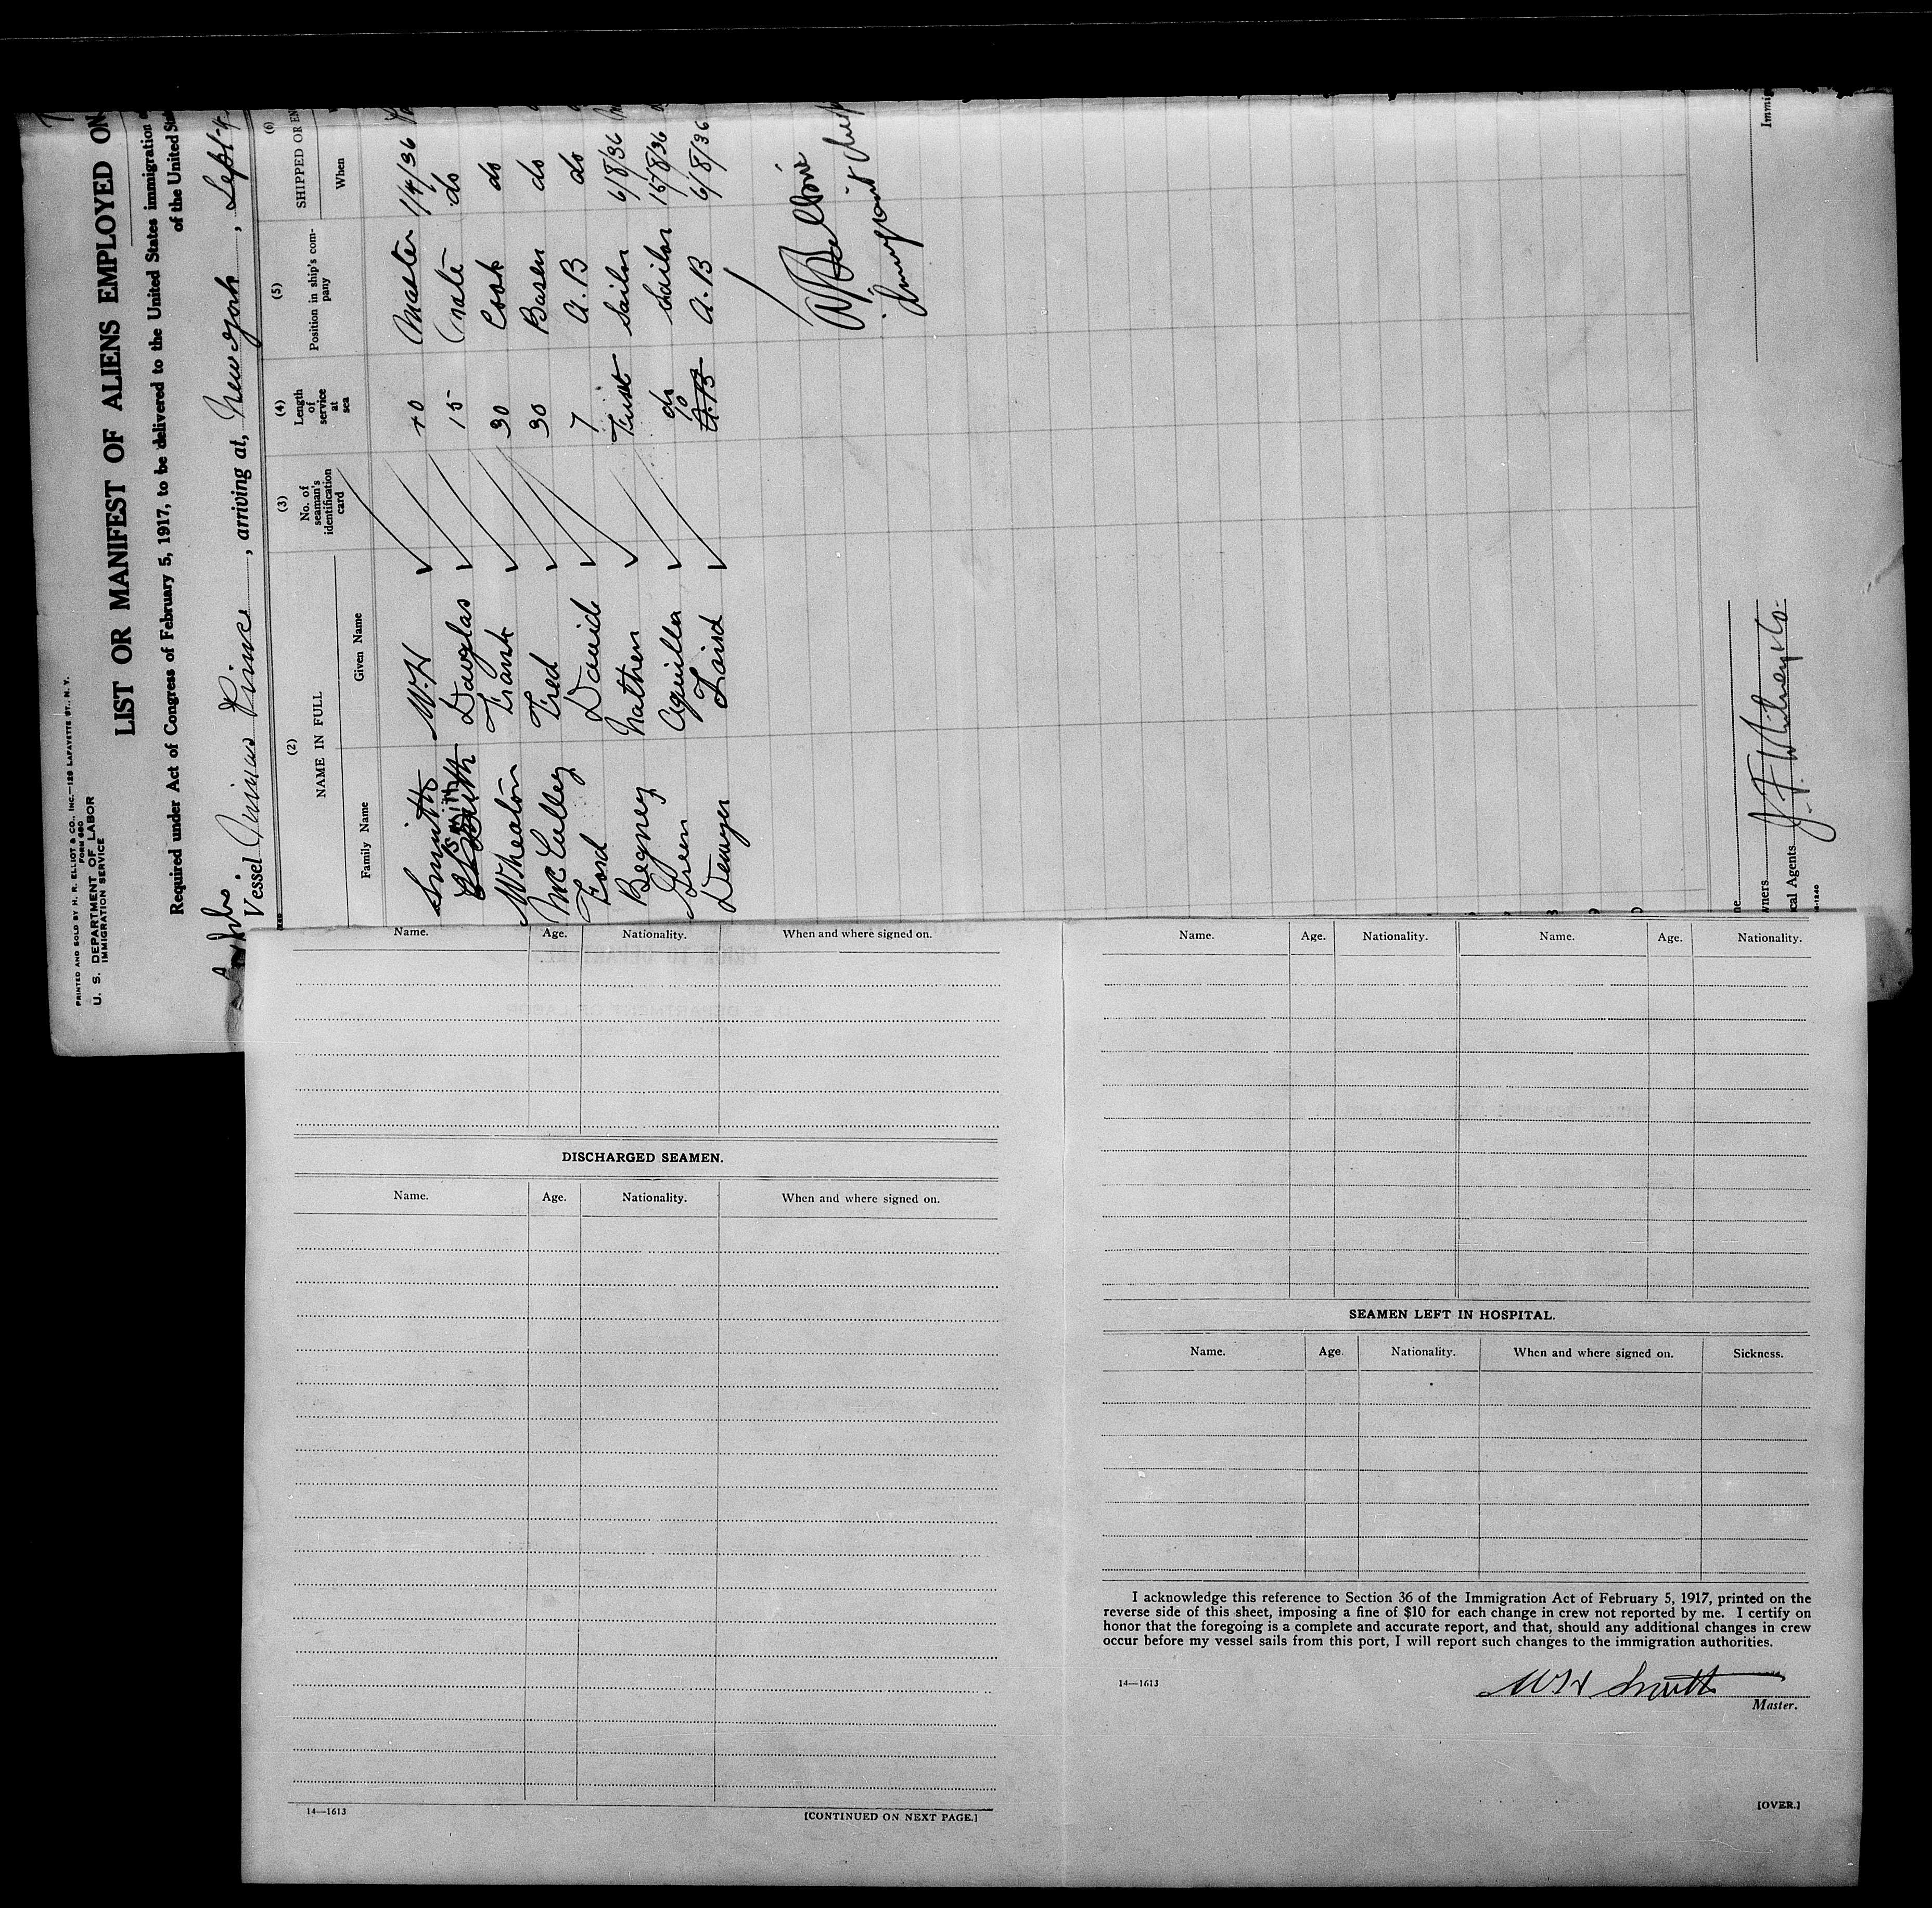 PRINTED AND SOLD BY H. R. ELLIOT & CO., INC.—129 LAFAYETTE ST., N. Y.
FORM 680
U. S. DEPARTMENT OF LABOR
IMMIGRATION SERVICE
LIST OR MANIFEST OF ALIENS EMPLOYED ON
Required under Act of Congress of February 5, 1917, to be delivered to the United States immigration
of the United Sta
Vessel Prince, arriving at, New York, Sept 4
(2) (3) (4) (5) (6)
NAME IN FULL No. of seaman's identification card Length of service at sea Position in ship's company SHIPPED OR EN
Family Name Given Name When
Smith W.H 40 Master 1/4/36
Smith Douglas 15 Mate do
Wheaton Frank 30 Cook do
McCulley Fred 30 Bosen do
Ford David 7 A.B do
Begney Nathen First Sailor 6/8/36
Green Aquilla do Sailor 15/8/36
Demyer Laird 10 A.B 6/8/36
Immig
ne
wners
cal Agents J. F. Whitney & Co.
14-1240
Name. Age. Nationality. When and where signed on.
DISCHARGED SEAMEN.
Name. Age. Nationality. When and where signed on.
14—1613 [CONTINUED ON NEXT PAGE.]
Name. Age. Nationality. Name. Age. Nationality.
SEAMEN LEFT IN HOSPITAL.
Name. Age. Nationality. When and where signed on. Sickness.
I acknowledge this reference to Section 36 of the Immigration Act of February 5, 1917, printed on the
reverse side of this sheet, imposing a fine of $10 for each change in crew not reported by me. I certify on
honor that the foregoing is a complete and accurate report, and that, should any additional changes in crew
occur before my vessel sails from this port, I will report such changes to the immigration authorities.
14—1613 WH Smith
Master.
[OVER.]